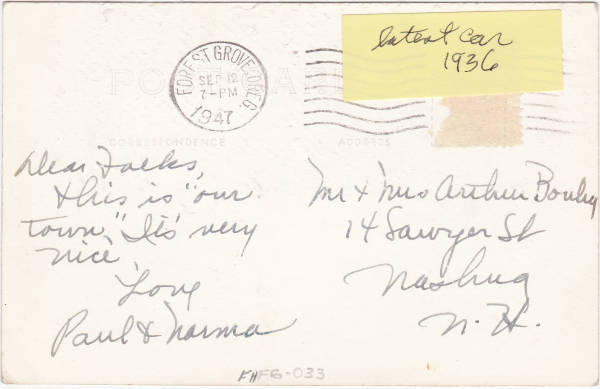 latest car
1936
FOREST GROVE, OREG.
SEP 12
7-PM
1947
POST CARD
CORRESPONDENCE
ADDRESS
Dear Folks,
this is "our
town." It's very
nice,
Love
Paul & Norma
Mr & Mrs Arthur
14 Sawyer St
Nashua
N. H.
FHF6-033